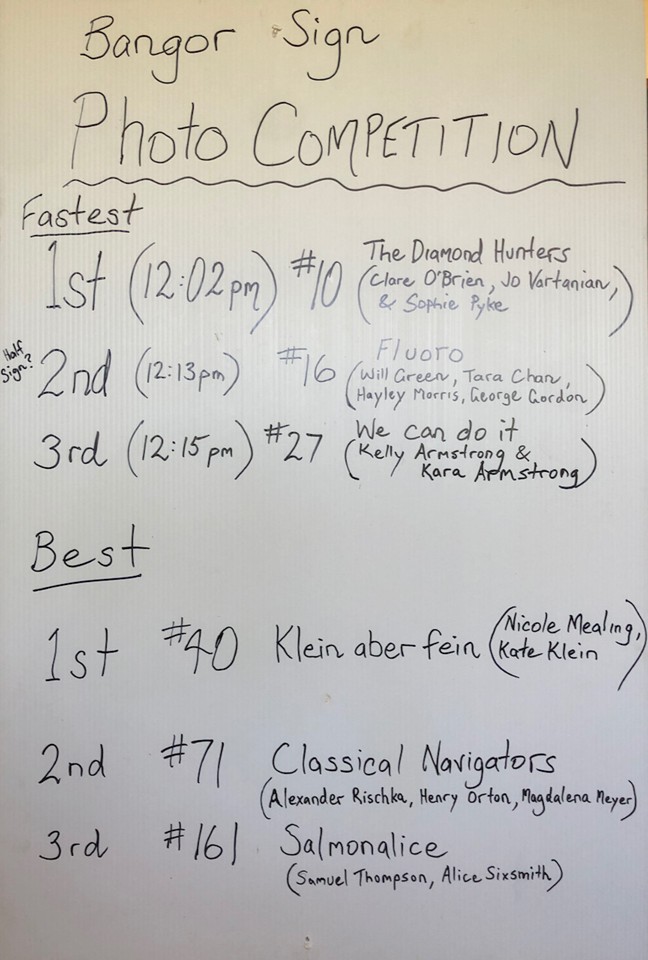 Bangor Sign
Photo COMPETITION
Fastest
1st (12:02pm) #10 The Diamond Hunters
(Clare O'Brien, Jo Vartanian,
& Sophie Pyke)
Half
Sign?
2nd (12:13pm) #16 Fluoro
(Will Green, Tara Chan,
Hayley Morris, George Gordon)
3rd (12:15pm) #27 We can do it
(Kelly Armstrong &
Kara Armstrong)
Best
1st #40 Klein aber fein (Nicole Mealing,
Kate Klein)
2nd #71 Classical Navigators
(Alexander Rischka, Henry Orton, Magdalena Meyer)
3rd #161 Salmonalice
(Samuel Thompson, Alice Sixsmith)